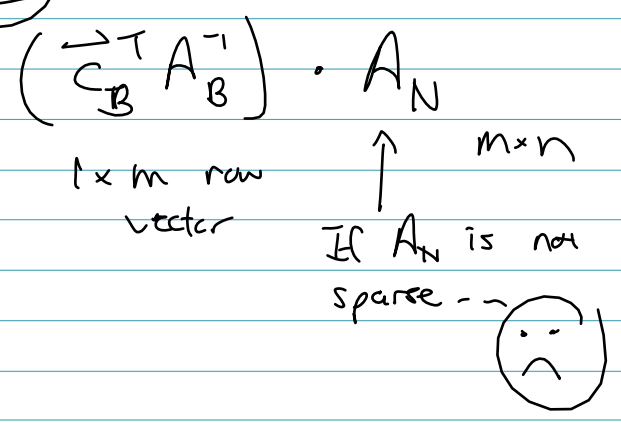 (c⃗_B^T A_B^{-1}) · A_N
m×n
1×m row
vector
↑
If A_N is not
sparse --